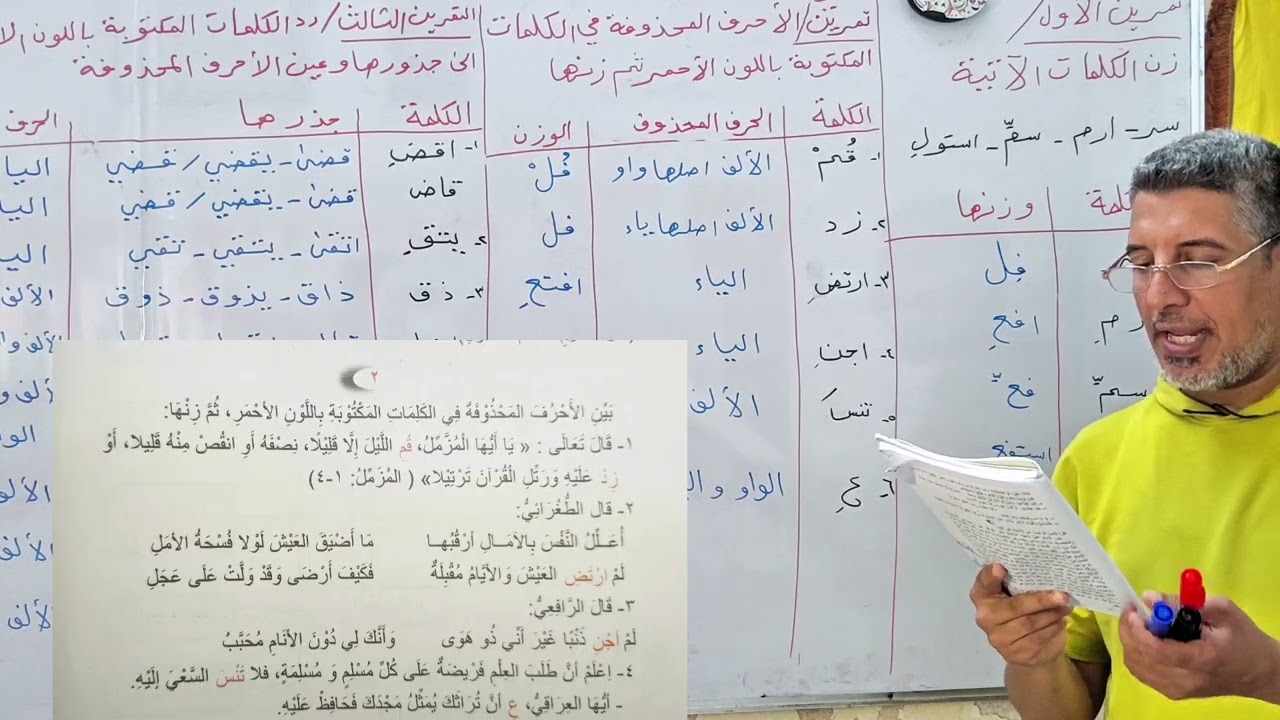 تمرين الاول/
زن الكلمات الآتية
سر - ارم - سمِّ - استولِ
وزنها
فِل
ارمِ
افعِ
سمّ
فعّ
استفع
تمرين/ الأحرف المحذوفة في الكلمات
المكتوبة باللون الأحمر ثم زنها
الكلمة
الحرف المحذوف
الوزن
١- قُمْ
الألف اصلها واو
فُلْ
٢- زد
الألف اصلها ياء
فل
٣- ارتضِ
الياء
افتعِ
٤- اجنِ
الياء
٥- تنسَ
الألف
٦- عِ
الواو و
التمرين الثالث/ رد الكلمات المكتوبة باللون
الى جذورها وعين الأحرف المحذوفة
الكلمة
جذرها
الحرف
١- اقضِ
قضىٰ - يقضي / قضي
قاض
قضىٰ - يقضي / قضي
٢- يتقِ
اتقىٰ - يتقي - تقي
٣- ذق
ذاق - يذوق - ذوق
٢
بَيِّنِ الأَحْرُفَ المَحْذُوْفَةَ فِي الكَلِمَاتِ المَكْتُوْبَةِ بِاللَّوْنِ الأَحْمَرِ، ثُمَّ زِنْهَا:
١- قَالَ تَعَالَى : « يَا أَيُّهَا الْمُزَّمِّلُ، قُمِ اللَّيْلَ إِلَّا قَلِيْلًا، نِصْفَهُ أَوِ انْقُصْ مِنْهُ قَلِيلا، أَوْ
زِدْ عَلَيْهِ وَرَتِّلِ الْقُرْآنَ تَرْتِيْلا» ( المُزَمِّلُ: ١-٤)
٢- قَالَ الطُّغْرَائِيُّ:
أُعَــلِّلُ النَّفْسَ بِالآمَـالِ أَرْقُبُهـا مَا أَضْيَقَ العَيْشَ لَوْلا فُسْحَةُ الأَمَلِ
لَمْ ارْتَضِ العَيْشَ وَالأَيَّامُ مُقْبِلَةٌ فَكَيْفَ أَرْضَى وَقَدْ وَلَّتْ عَلَى عَجَلِ
٣- قَالَ الرَّافِعِيُّ:
لَمْ اَجْنِ ذَنْبًا غَيْرَ أَنِّي ذُو هَوَى وَأَنَّكَ لِي دُوْنَ الأَنَامِ مُحَبَّبُ
٤- اِعْلَمْ أَنَّ طَلَبَ العِلْمِ فَرِيْضَةٌ عَلَى كُلِّ مُسْلِمٍ وَ مُسْلِمَةٍ، فَلا تَنْسَ السَّعْيَ إِلَيْهِ.
- أَيُّهَا العِرَاقِيُّ، عِ أَنَّ تُرَاثَكَ يُمَثِّلُ مَجْدَكَ فَحَافِظْ عَلَيْهِ.